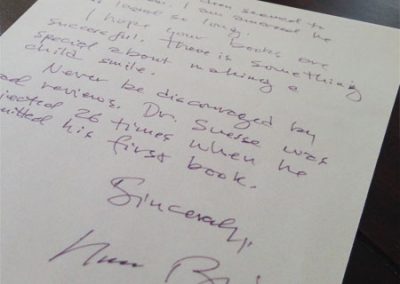 seemed to
I am amazed he
so long.
I hope your books are
successful. There is something
special about making a
child smile.
Never be discouraged by
ad reviews. Dr. Suesse was
jected 26 times when he
mitted his first book.
Sincerely,